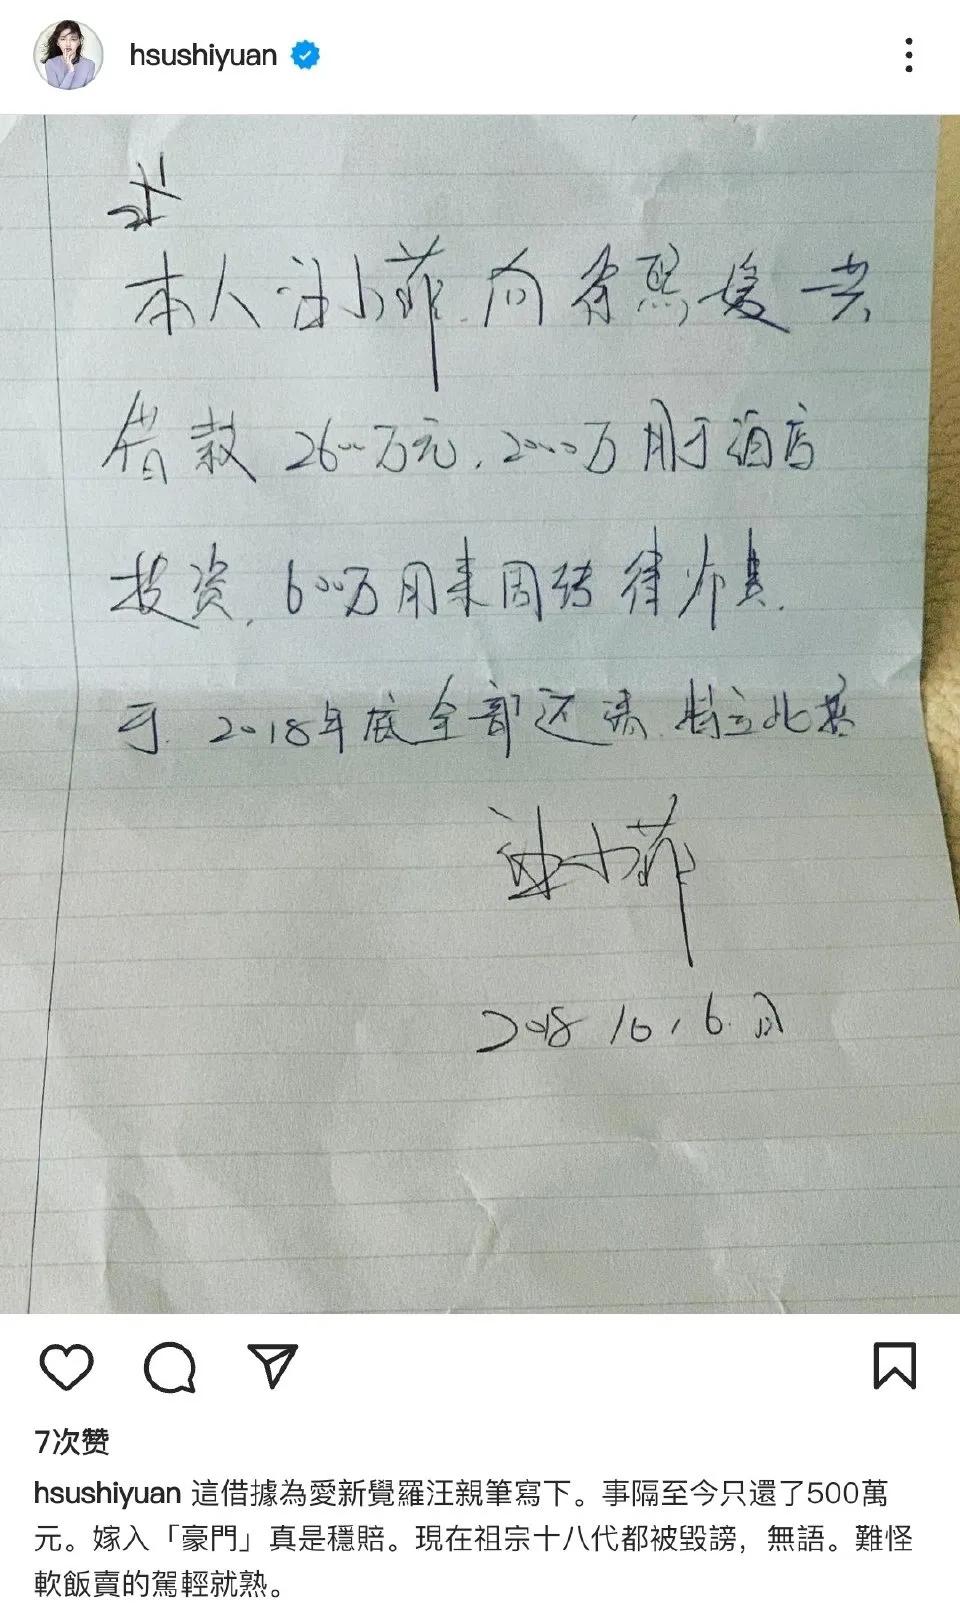 hsushiyuan
本人汪小菲向徐熙媛共
借款2600万元,2000万用于酒店
投资,600万用来周转律师费.
于2018年底全部还清.特立此据
汪小菲
2018 10,6.日
7次赞
hsushiyuan 這借據為愛新覺羅汪親筆寫下。事隔至今只還了500萬
元。嫁入「豪門」真是穩賠。現在祖宗十八代都被毀謗，無語。難怪
軟飯賣的駕輕就熟。